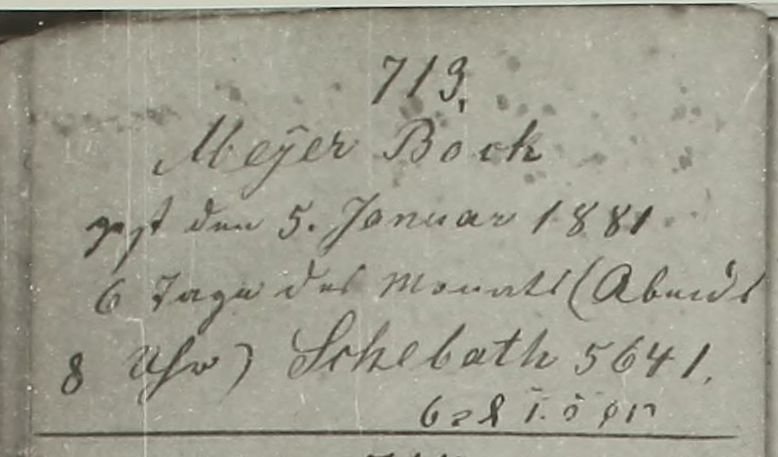 713.
Meyer Bock
gest den 5. Januar 1881
6 Tage des Monats (Abends
8 Uhr) Schebath 5641.